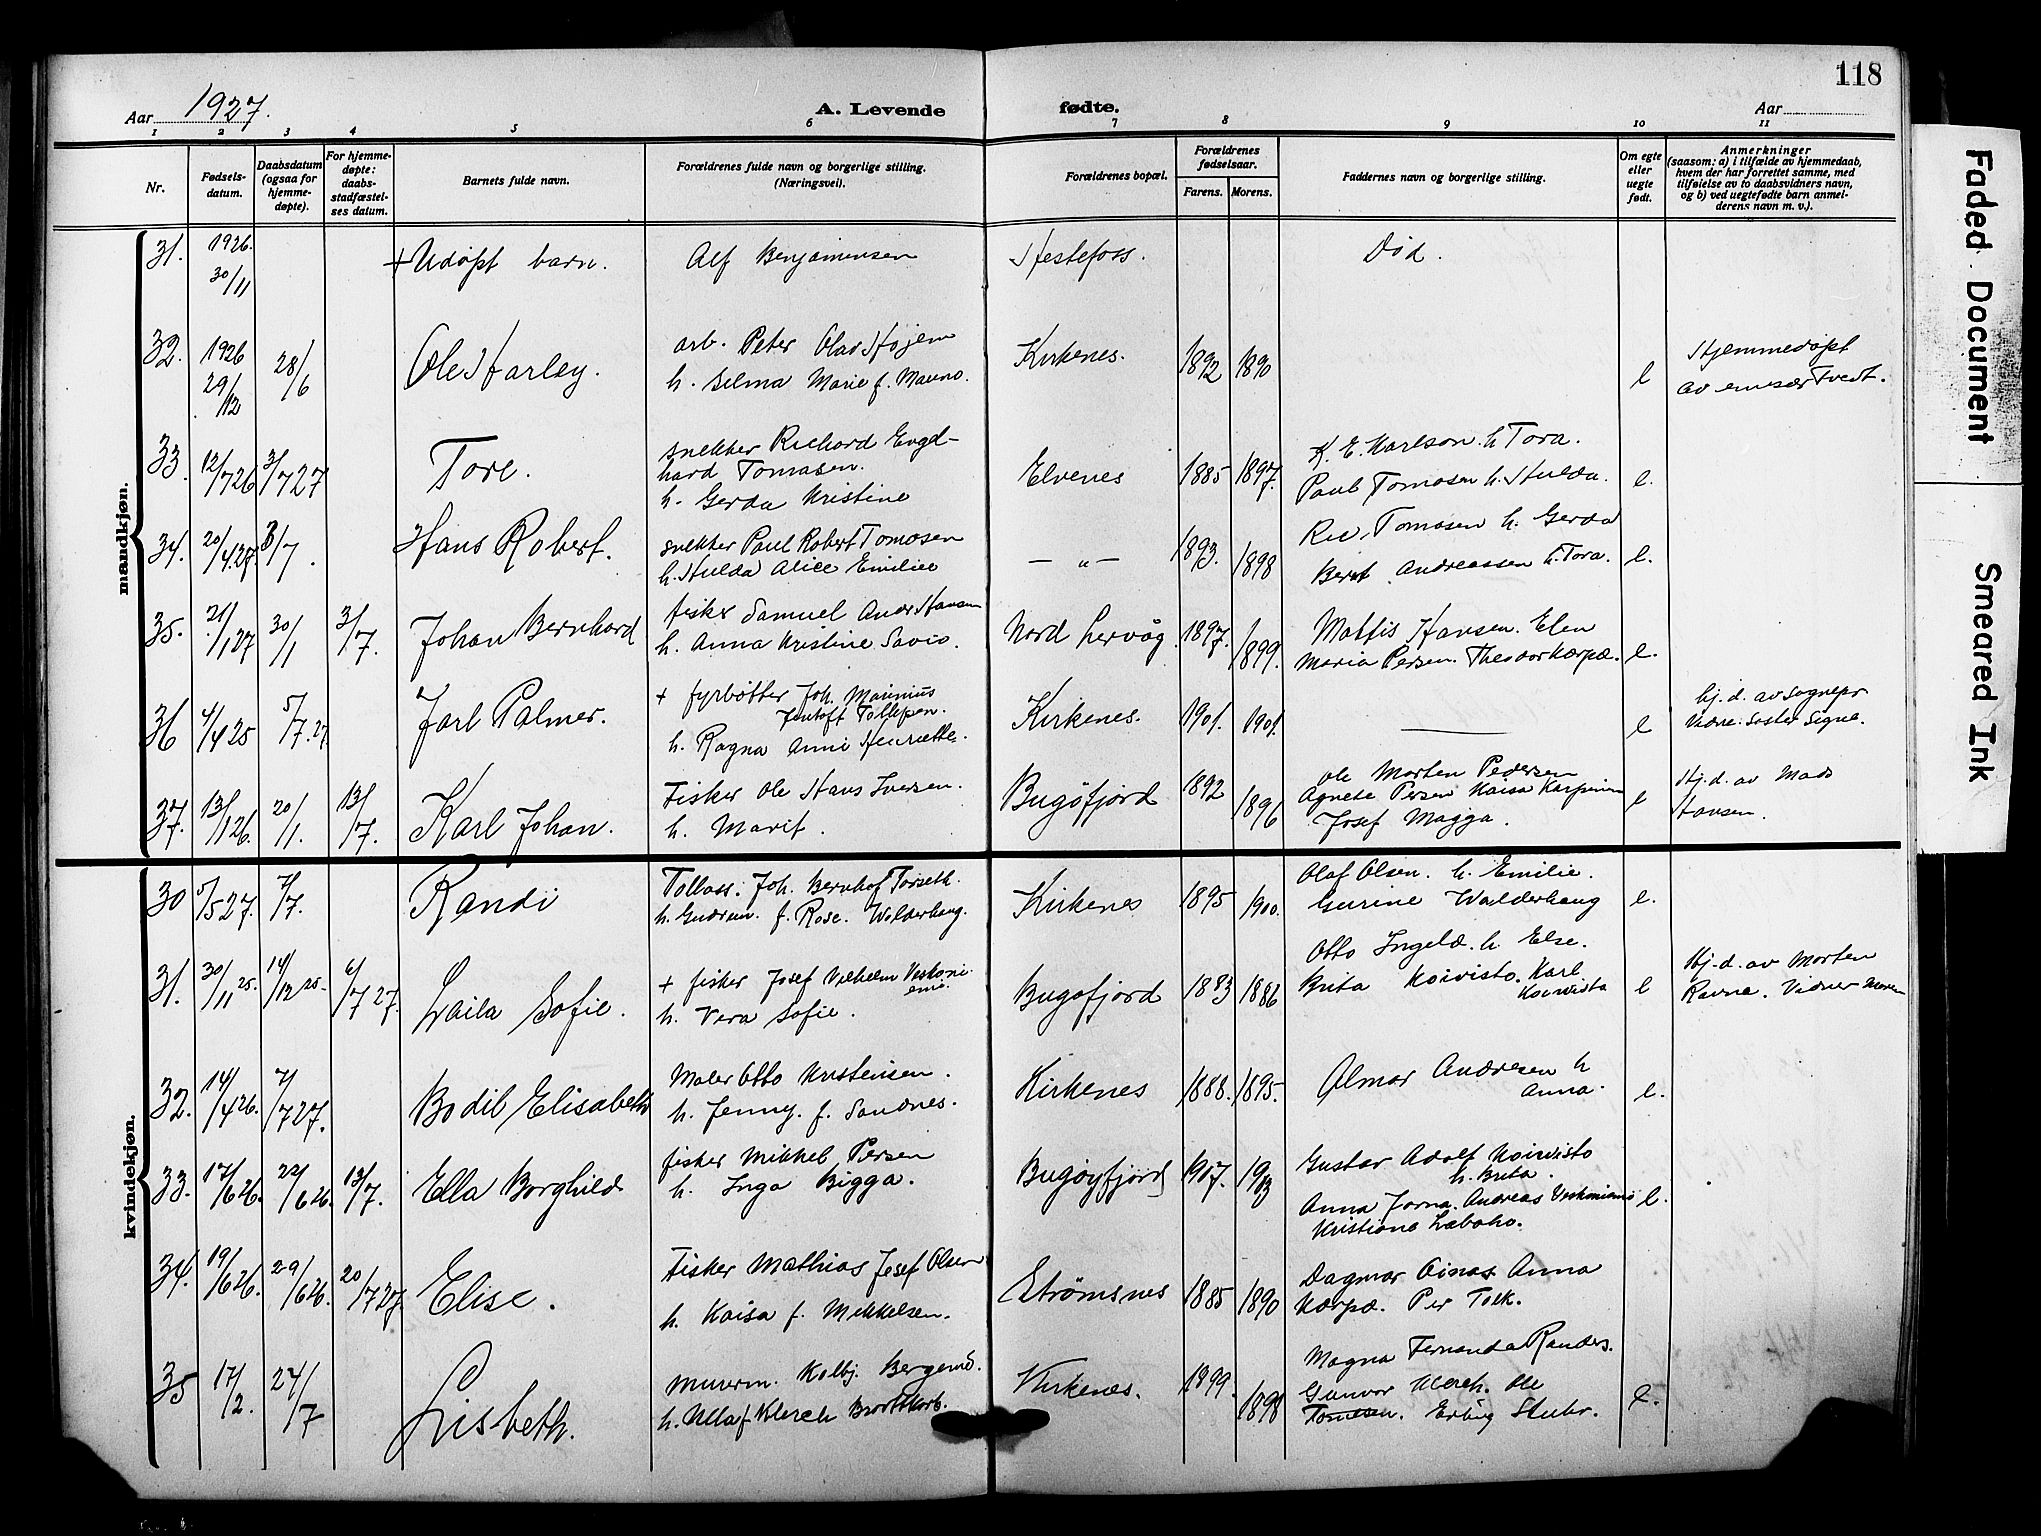 118
Aar 1927.
A. Levende fødte.
Aar
1 2 3 4 5 6 7 8 9 10 11
Nr.
Fødsels-
datum.
Daabsdatum
(ogsaa for
hjemme-
døpte).
For hjemme-
døpte:
daabs-
stadfæstel-
ses datum.
Barnets fulde navn.
Forældrenes fulde navn og borgerlige stilling.
(Næringsvei).
Forældrenes bopæl.
Forældrenes
fødselsaar.
Farens. Morens.
Faddernes navn og borgerlige stilling.
Om egte
eller
uegte
født.
Anmerkninger
(saasom: a) i tilfælde av hjemmedaab,
hvem der har forrettet samme, med
tilføielse av to daabsvidners navn,
og b) ved uegtefødte barn anmel-
derens navn m. v.).
mandkjøn.
31. 1926. 30/11 + Udøpt barn. Alf Benjaminsen Hestefoss. Død.
32. 1926 29/12 28/6 Ole Harley.
arb. Peter Olav Højem
h. Selma Marie f. Mauno.
Kirkenes. 1892 1890 e
Hjemmedøpt
av emisær Tvedt.
33. 12/7 26 3/7 27 Tore.
snekker Richard Engel-
hard Tomasen.
h. Gerda Kristine
Elvenes 1885 1897.
K. E. Karlson h. Tora.
Paul Tomasen h. Hulda. e.
34. 20/4.27. 3/7. Hans Robert.
snekker Paul Robert Tomasen
h. Hulda Alice Emilie
— „ — 1893. 1898
Ric. Tomasen h. Gerda
Bernt Andreassen h. Tora. e.
35. 21/1 27 30/1 3/7. Johan Bernhard
fisker Samuel And. Hansen
h. Anna Kristine Savio.
Nord Lervåg 1897. 1899.
Mattis Hansen. Elen
Maria Persen. Theodor Karpæ. e.
36 4/4 25 5/7.27. Jarl Palmer.
+ fyrbøtter Joh. Marinius
Jentoft Tollefsen.
h. Ragna Anni Henriette.
Kirkenes. 1901. 1901. — e
hj. d. av sognepr
Vidne: søster Signe.
37. 13/1 26. 20/1. 13/7. Karl Johan.
Fisker Ole Hans Iversen.
h. Marit.
Bugøfjord 1892 1896
Ole Morten Pedersen
Agnete Persen Kaisa Karpinen
Josef Magga. e
Hj. d. av Mads
Hansen.
kvindekjøn.
30 5/5 27. 7/7. Randi
Tollass. Joh. Bernhof Torseth.
h. Gudrun. f. Rose. Walderhaug.
Kirkenes 1895 1900.
Olaf Olsen. h. Emilie.
Gurine Walderhaug e.
31. 30/11 25. 14/12 25. 6/7 27. Laila Sofie.
+ fisker Josef Vilhelm Veskoni-
emi.
h. Vera Sofie.
Bugøfjord 1883 1886
Otto Ingeld. h. Else.
Brita Koivisto. Karl
Koivisto e
Hj. d. av Morten
Ravna. Vidner Moren
32. 14/4 26. 7/7 27. Bodil Elisabeth
Maler Otto Kristensen.
h. Jenny. f. Sandnes.
Kirkenes 1888. 1895.
Almar Andresen h
Anna. e.
33. 17/6 26. 22/6 26. 13/7. Ella Borghild
fisker Mikkel Persen
h. Inga Bigga.
Bugøyfjord 1907. 1903
Gustav Adolf Koivisto
h. Brita.
Anna Jorna. Andreas Veskoniemi
Kristiane Labaho. e.
34. 19/6 26. 29/6 26. 20/7 27 Elise.
Fisker Mathias Josef Olsen
h. Kaisa f. Mikkelsen.
Strømsnes 1885 1890
Dagmar Oinas Anna
Karpæ. Per Tolk.
35 17/2. 24/7 Lisbeth.
Murerm. Kolbj. Bergemo.
h. Ulla f. Klerch
Kirkenes. 1899. 1898
Magna Fernanda Randers.
Gunvor Klerch. Ole
Tomesen. Erling Stuhr. e.
Faded Document
Smeared Ink